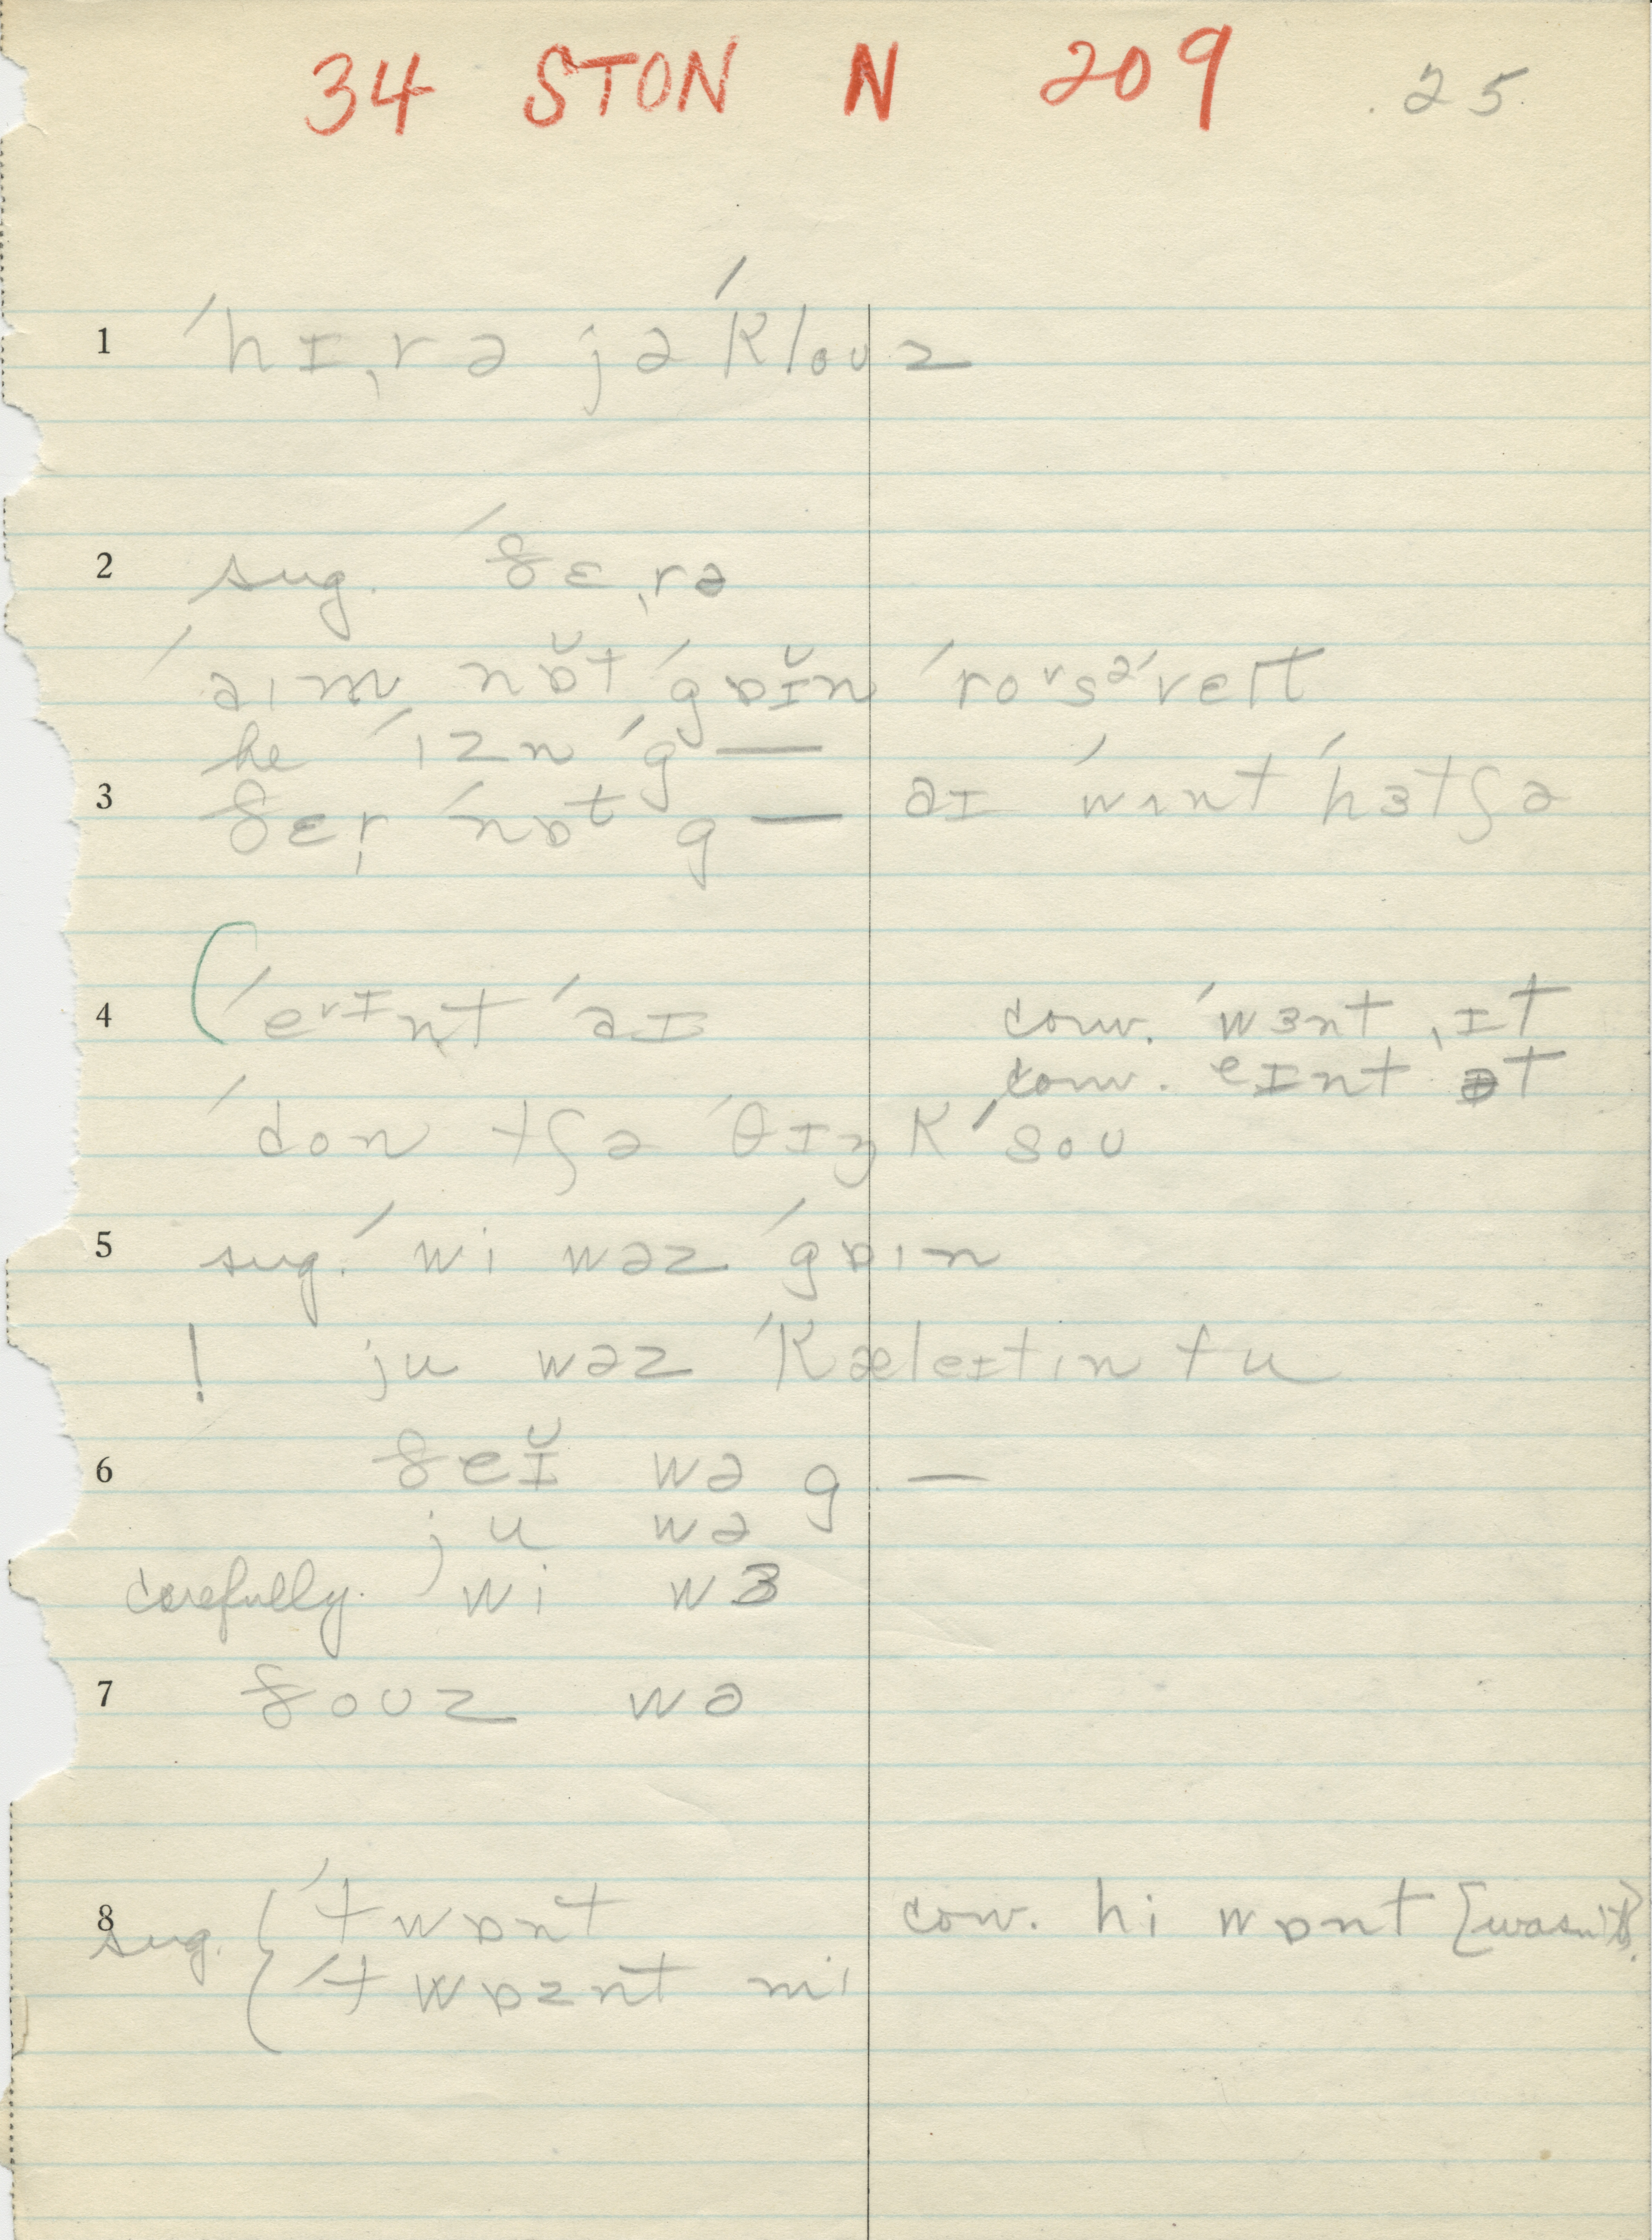 34 STON N 209 25
1 ˈhɪˌrə jəˈklouz
2 sug. ˈðɛˌrə
ˈaɪm nɒ̆t ˈgɒɪ̆n
he ˈɪzn ˈg—
3 ðɛr̩ ˈnɒt g— aɪ ˈwɪnt ˈhɜtʃə
4 (ˈeᵛɪnt ˈaɪ conv. ˈwɜnt ˌɪt
conv. eɪnt ət
ˈdon tʃə ˈθɪŋk ˈsou
5 sug. ˈwi wəz ˈgɒɪn
! ju wəz ˈkæleɪtɪn tu
6 ðeɪ̆ wə g—
ju wə
carefully. wi wɜ
7 ðouz wə
8 sug. { ˈt wɒnt conv. hi wɒnt [wasn't].
ˈt wɒznt mi